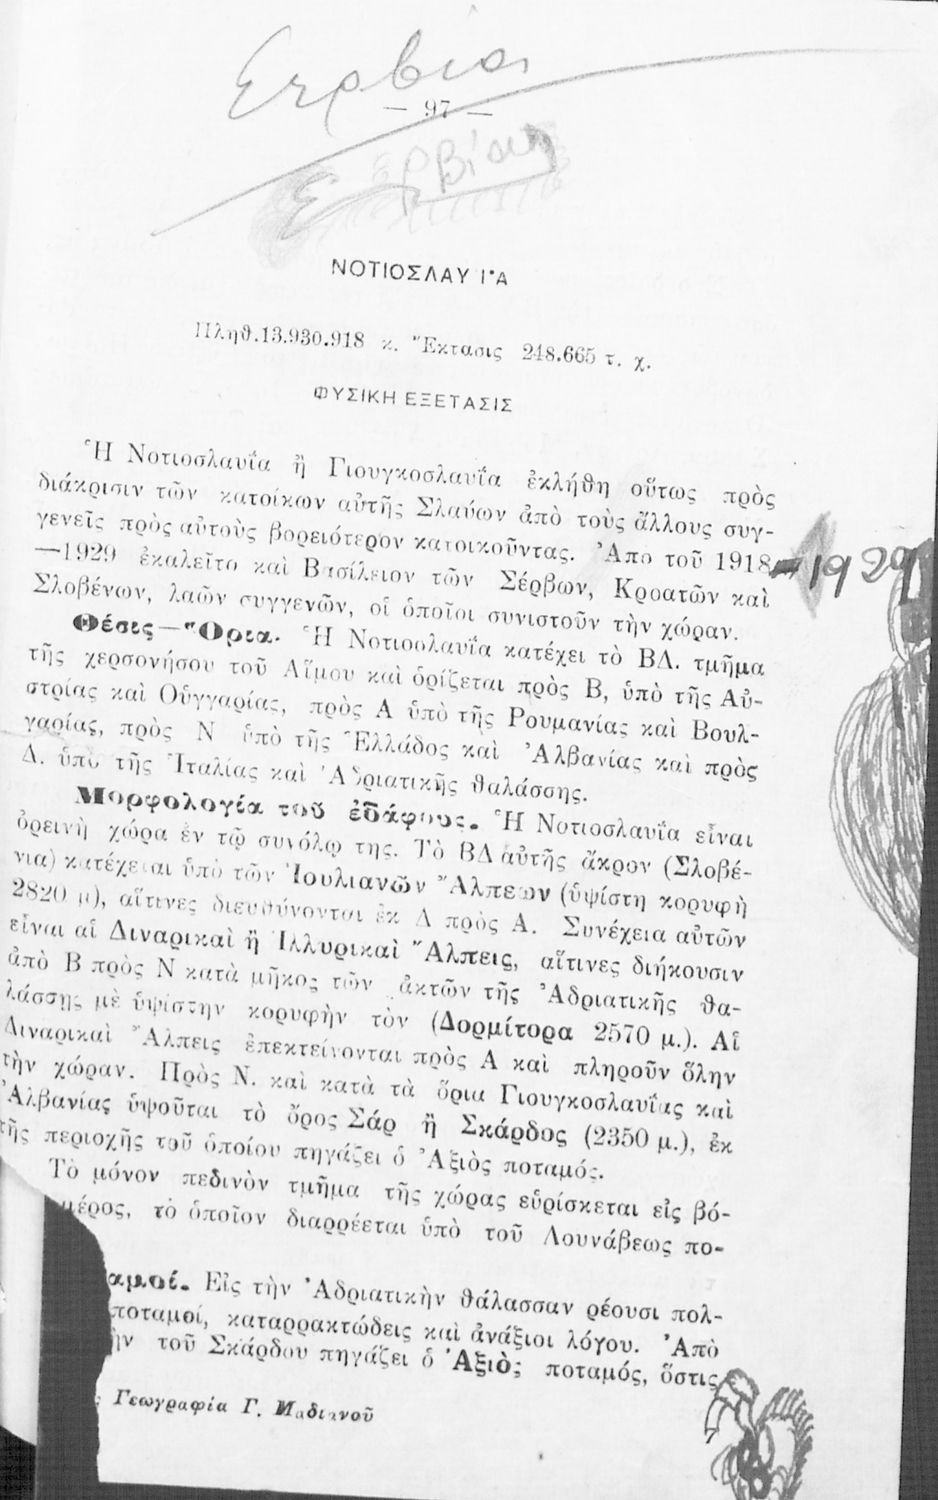 Σερβία
— 97 —
Σερβία
ΝΟΤΙΟΣΛΑΥ Ι'Α
Πληθ.13.930.918 κ. Ἔκτασις 248.665 τ. χ.
ΦΥΣΙΚΗ ΕΞΕΤΑΣΙΣ
Ἡ Νοτιοσλαυΐα ἢ Γιουγκοσλαυΐα ἐκλήθη οὕτως πρὸς
διάκρισιν τῶν κατοίκων αὐτῆς Σλαύων ἀπὸ τοὺς ἄλλους συγ-
γενεῖς πρὸς αὐτοὺς βορειότερον κατοικοῦντας. Ἀπὸ τοῦ 1918 -1929
—1929 ἐκαλεῖτο καὶ Βασίλειον τῶν Σέρβων, Κροατῶν καὶ
Σλοβένων, λαῶν συγγενῶν, οἱ ὁποῖοι συνιστοῦν τὴν χώραν.
Θέσις—Ὅρια. Ἡ Νοτιοσλαυΐα κατέχει τὸ ΒΔ. τμῆμα
τῆς χερσονήσου τοῦ Αἵμου καὶ ὁρίζεται πρὸς Β, ὑπὸ τῆς Αὐ-
στρίας καὶ Οὑγγαρίας, πρὸς Α ὑπὸ τῆς Ρουμανίας καὶ Βουλ-
γαρίας, πρὸς Ν ὑπὸ τῆς Ἑλλάδος καὶ Ἀλβανίας καὶ πρὸς
Δ. ὑπὸ τῆς Ἰταλίας καὶ Ἀδριατικῆς θαλάσσης.
Μορφολογία τοῦ ἐδάφους. Ἡ Νοτιοσλαυΐα εἶναι
ὀρεινὴ χώρα ἐν τῷ συνόλῳ της. Τὸ ΒΔ αὐτῆς ἄκρον (Σλοβέ-
νια) κατέχεται ὑπὸ τῶν Ἰουλιανῶν Ἄλπεων (ὑψίστη κορυφὴ
2820 μ), αἵτινες διευθύνονται ἐκ Δ πρὸς Α. Συνέχεια αὐτῶν
εἶναι αἱ Διναρικαὶ ἢ Ἰλλυρικαὶ Ἄλπεις, αἵτινες διήκουσιν
ἀπὸ Β πρὸς Ν κατὰ μῆκος τῶν ἀκτῶν τῆς Ἀδριατικῆς θα-
λάσσης μὲ ὑψίστην κορυφὴν τὸν (Δορμίτορα 2570 μ.). Αἱ
Διναρικαὶ Ἄλπεις ἐπεκτείνονται πρὸς Α καὶ πληροῦν ὅλην
τὴν χώραν. Πρὸς Ν. καὶ κατὰ τὰ ὅρια Γιουγκοσλαυΐας καὶ
Ἀλβανίας ὑψοῦται τὸ ὄρος Σάρ ἢ Σκάρδος (2350 μ.), ἐκ
τῆς περιοχῆς τοῦ ὁποίου πηγάζει ὁ Ἀξιὸς ποταμός.
Τὸ μόνον πεδινὸν τμῆμα τῆς χώρας εὑρίσκεται εἰς βό-
μέρος, τὸ ὁποῖον διαρρέεται ὑπὸ τοῦ Δουνάβεως πο-
αμοί. Εἰς τὴν Ἀδριατικὴν θάλασσαν ρέουσι πολ-
ποταμοί, καταρρακτώδεις καὶ ἀνάξιοι λόγου. Ἀπὸ
ὴν τοῦ Σκάρδου πηγάζει ὁ Ἀξιὸς ποταμός, ὅστις
Γεωγραφία Γ. Μαδιανοῦ
7